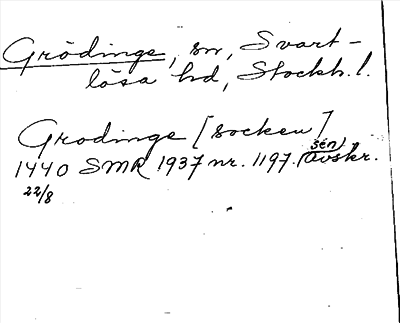 Grödinge, sn, Svart-
lösa hd, Stockh. l.
Grodinge [socken]
1440 SMR 1937 nr. 1197. (sen) avskr.
22/8